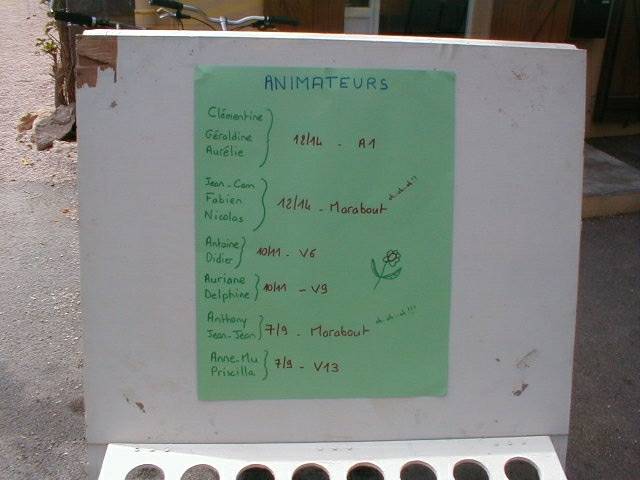 ANIMATEURS
Clémentine
Géraldine
Aurélie
12/14 - A1
Jean-Cam
Fabien
Nicolas
12/14 - Marabout
Antoine
Didier
10/11 - V6
Auriane
Delphine
10/11 - V9
Anthony
Jean-Jean
7/9 - Marabout
Anne-Mu
Priscilla
7/9 - V13